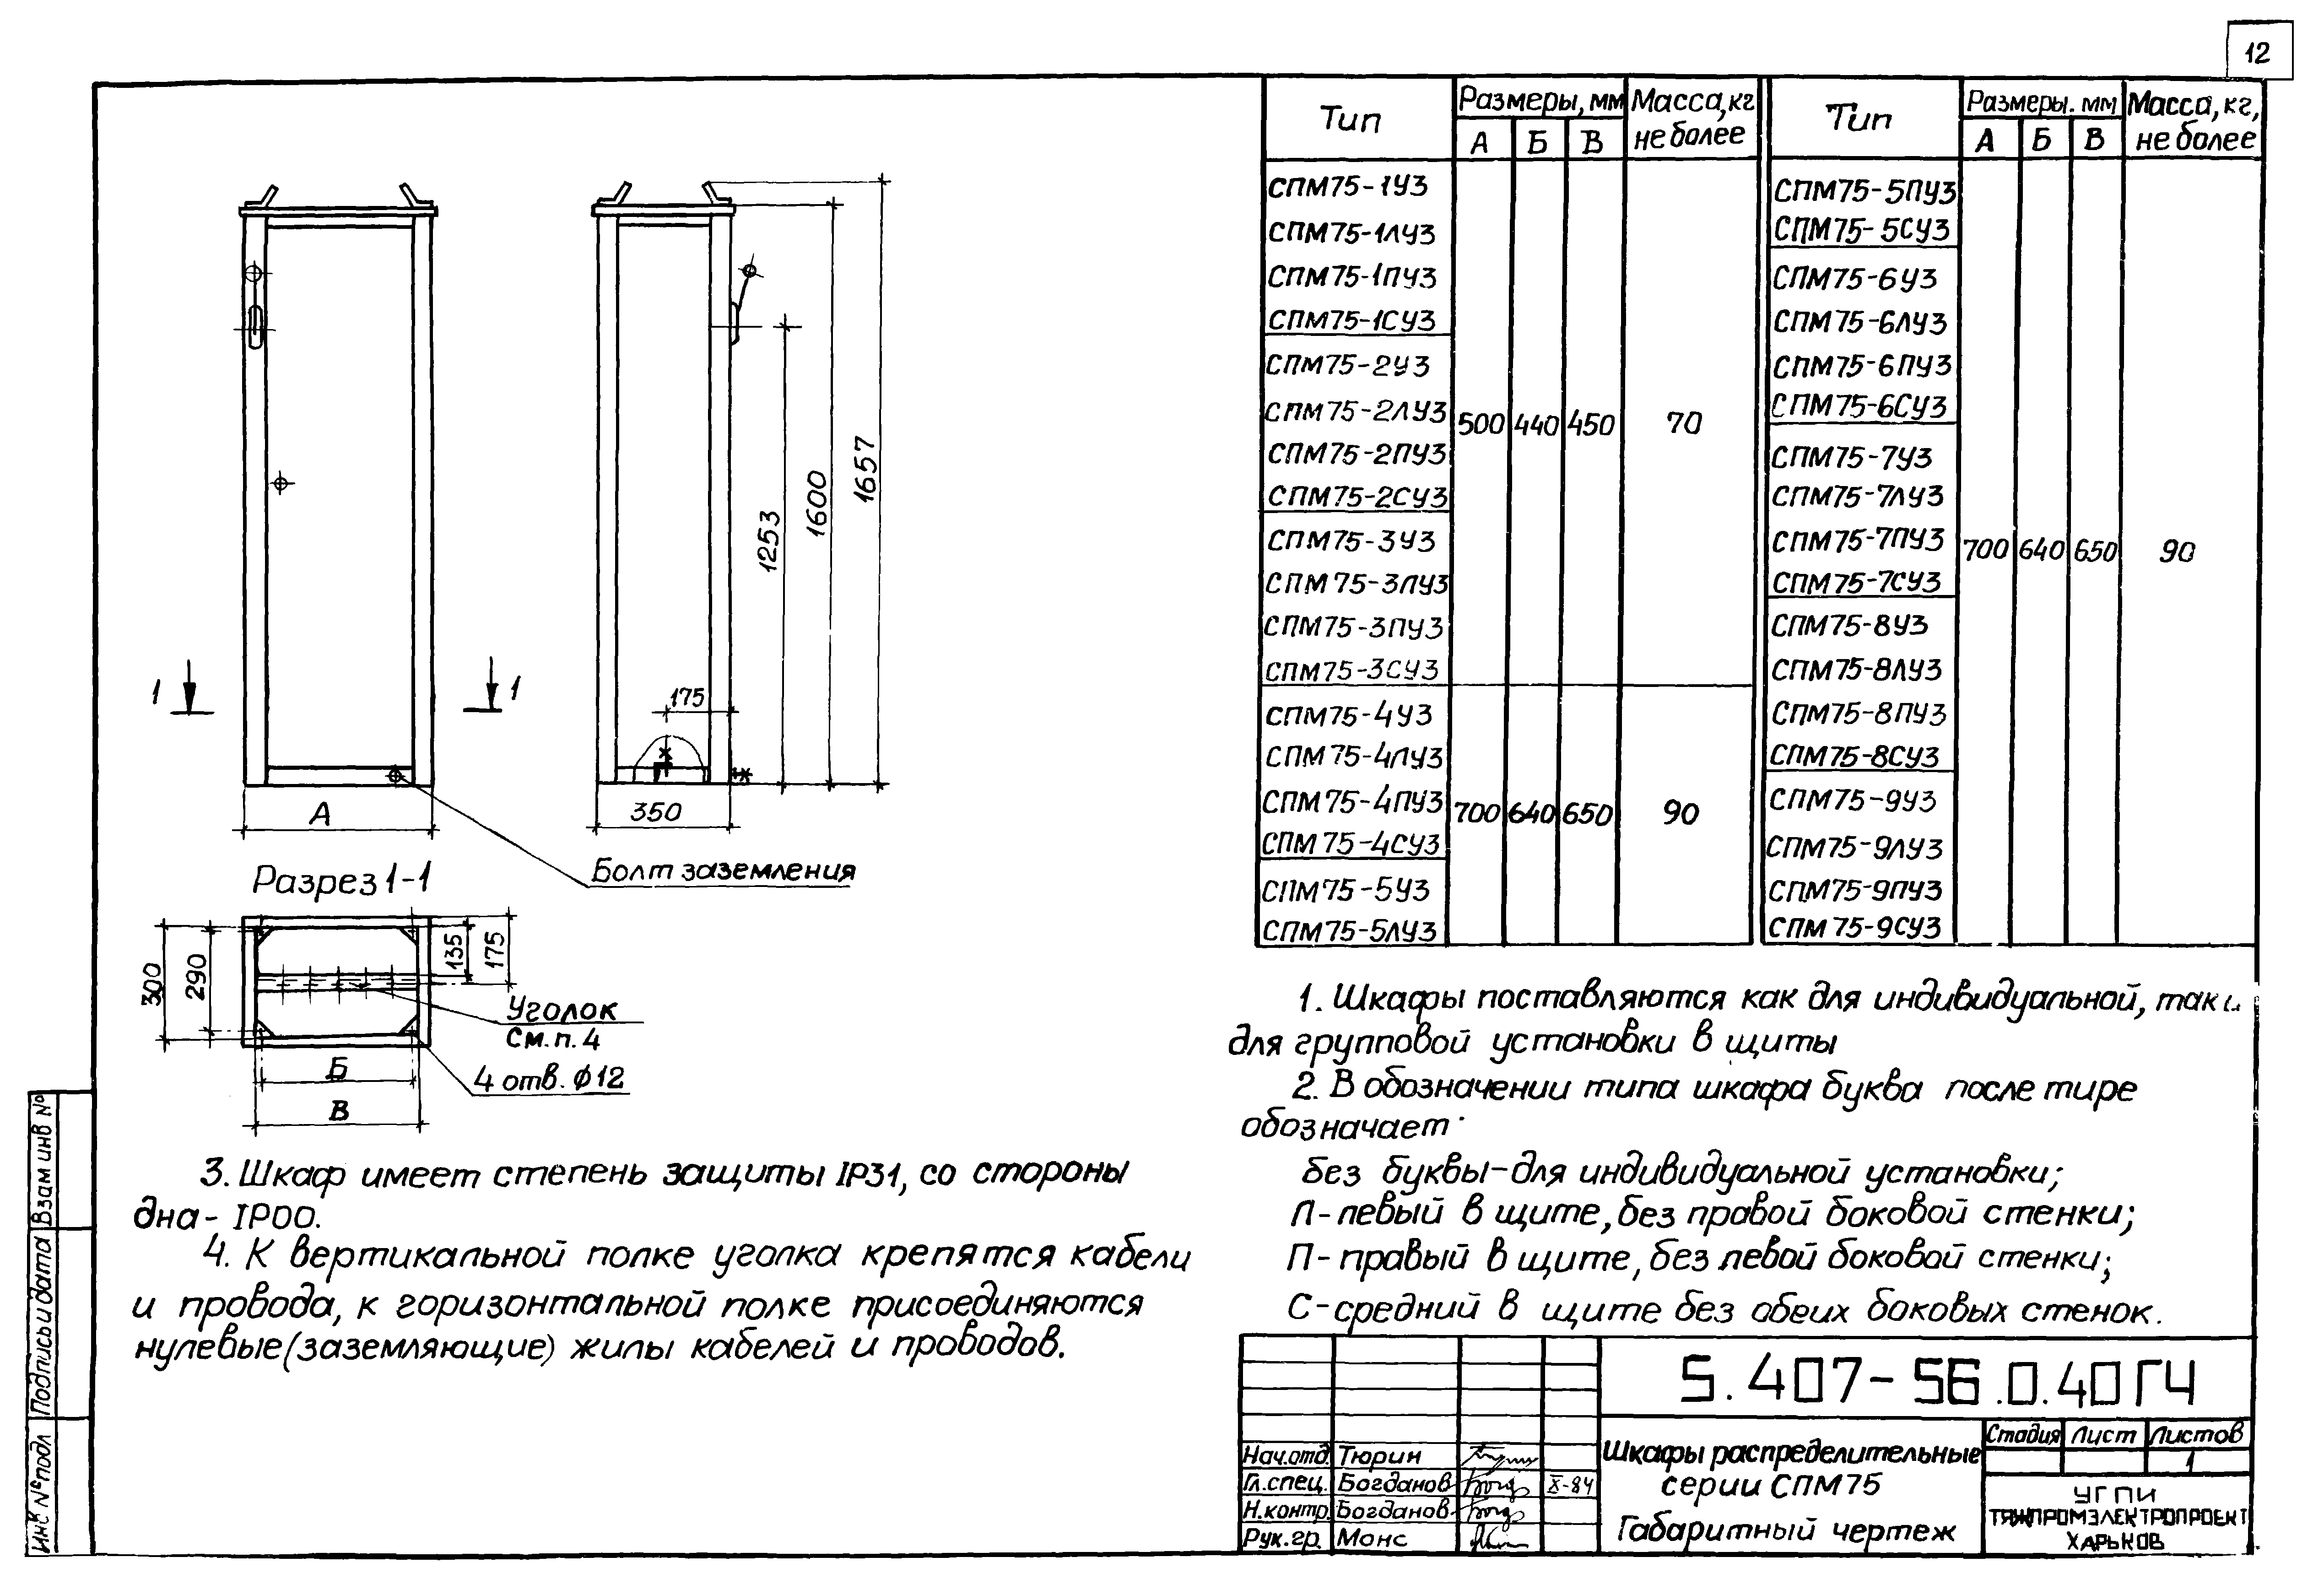 12
Тип
Размеры, мм
Масса, кг
не более
А Б В
СПМ75-1У3
СПМ75-1ЛУ3
СПМ75-1ПУ3
СПМ75-1СУ3
СПМ75-2У3
СПМ75-2ЛУ3
СПМ75-2ПУ3
СПМ75-2СУ3
СПМ75-3У3
СПМ75-3ЛУ3
СПМ75-3ПУ3
СПМ75-3СУ3
500 440 450 70
СПМ75-4У3
СПМ75-4ЛУ3
СПМ75-4ПУ3
СПМ75-4СУ3
СПМ75-5У3
СПМ75-5ЛУ3
700 640 650 90
Тип
Размеры. мм
Масса, кг,
не более
А Б В
СПМ75-5ПУ3
СПМ75-5СУ3
СПМ75-6У3
СПМ75-6ЛУ3
СПМ75-6ПУ3
СПМ75-6СУ3
СПМ75-7У3
СПМ75-7ЛУ3
СПМ75-7ПУ3
СПМ75-7СУ3
СПМ75-8У3
СПМ75-8ЛУ3
СПМ75-8ПУ3
СПМ75-8СУ3
СПМ75-9У3
СПМ75-9ЛУ3
СПМ75-9ПУ3
СПМ75-9СУ3
700 640 650 90
1657
1600
1253
175
350
1 1
А
Болт заземления
Разрез 1-1
300
290
135
175
Уголок
См. п. 4
4 отв. ϕ12
Б
В
1. Шкафы поставляются как для индивидуальной, так и
для групповой установки в щиты
2. В обозначении типа шкафа буква после тире
обозначает:
без буквы-для индивидуальной установки;
Л-левый в щите, без правой боковой стенки;
П-правый в щите, без левой боковой стенки;
С-средний в щите без обеих боковых стенок.
3. Шкаф имеет степень защиты IP31, со стороны
дна- IP00.
4. К вертикальной полке уголка крепятся кабели
и провода, к горизонтальной полке присоединяются
нулевые (заземляющие) жилы кабелей и проводов.
5.407-56.0.40ГЧ
Нач.отд. Тюрин
Гл.спец. Богданов X-84
Н.контр. Богданов
Рук.гр. Монс
Шкафы распределительные
серии СПМ75
Габаритный чертеж
Стадия Лист Листов
1
УГПИ
ТЯЖПРОМЭЛЕКТРОПРОЕКТ
ХАРЬКОВ
Инв № подл
Подпись и дата
Взам инв №